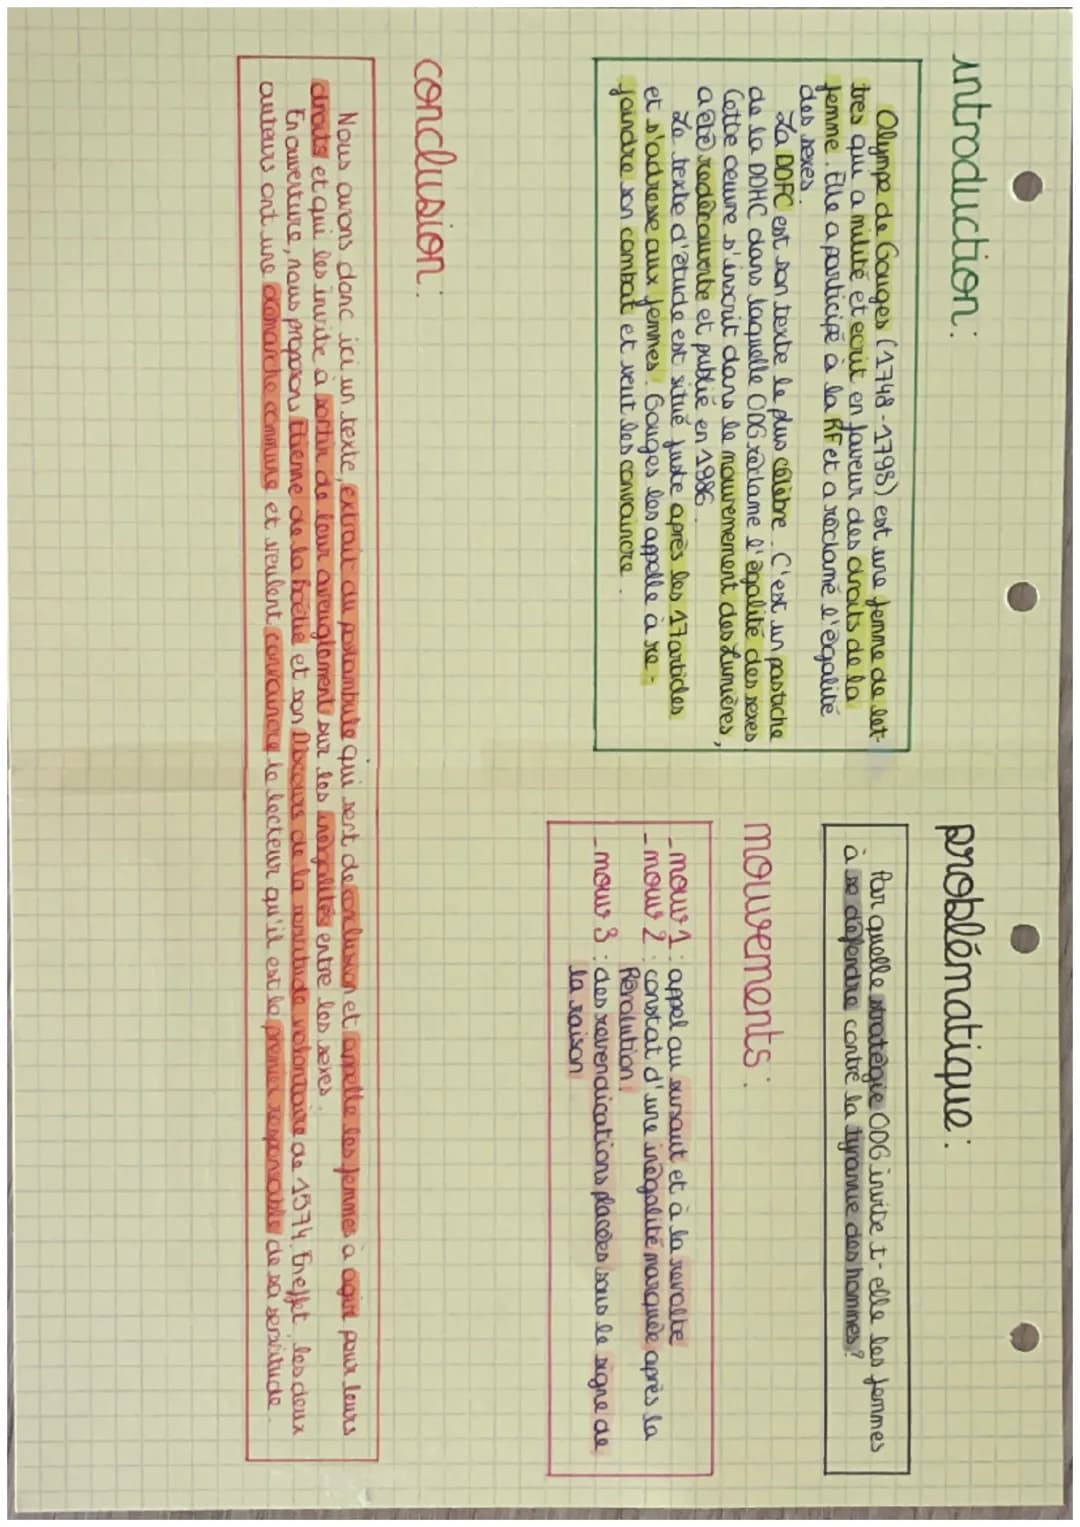 introduction :
Olympe de Gouges (1748-1793) est une femme de let-
tres qui a milité et écrit en faveur des droits de la
femme. Elle a participé à la RF et a réclamé l'égalité
des sexes.
La DDFC est son texte le plus célèbre. C'est un pastiche
de la DDHC dans laquelle ODG réclame l'égalité des sexes.
Cette oeuvre s'inscrit dans le mouvement des Lumières,
a été redécouverte et publié en 1986.
Le texte d'étude est situé juste après les 17 articles
et s'adresse aux femmes. Gouges les appelle à re-
joindre son combat et veut les convaincre.
problématique :
Par quelle stratégie ODG invite t-elle les femmes
à se défendre contre la tyrannie des hommes ?
mouvements :
- mouv 1 : appel au sursaut et à la révolte
- mouv 2 : constat d'une inégalité marquée après la
Révolution
- mouv 3 : des revendications placées sous le signe de
la raison
conclusion :
Nous avons donc ici un texte, extrait du postambule qui sert de conclusion et appelle les femmes à agir pour leurs
droits et qui les invite à sortir de leur aveuglement sur les inégalités entre les sexes.
En ouverture, nous proposons Etienne de la boétie et son Discours de la servitude volontaire de 1574. En effet, les deux
auteurs ont une démarche commune et veulent convaincre le lecteur qu'il est le premier responsable de sa servitude.